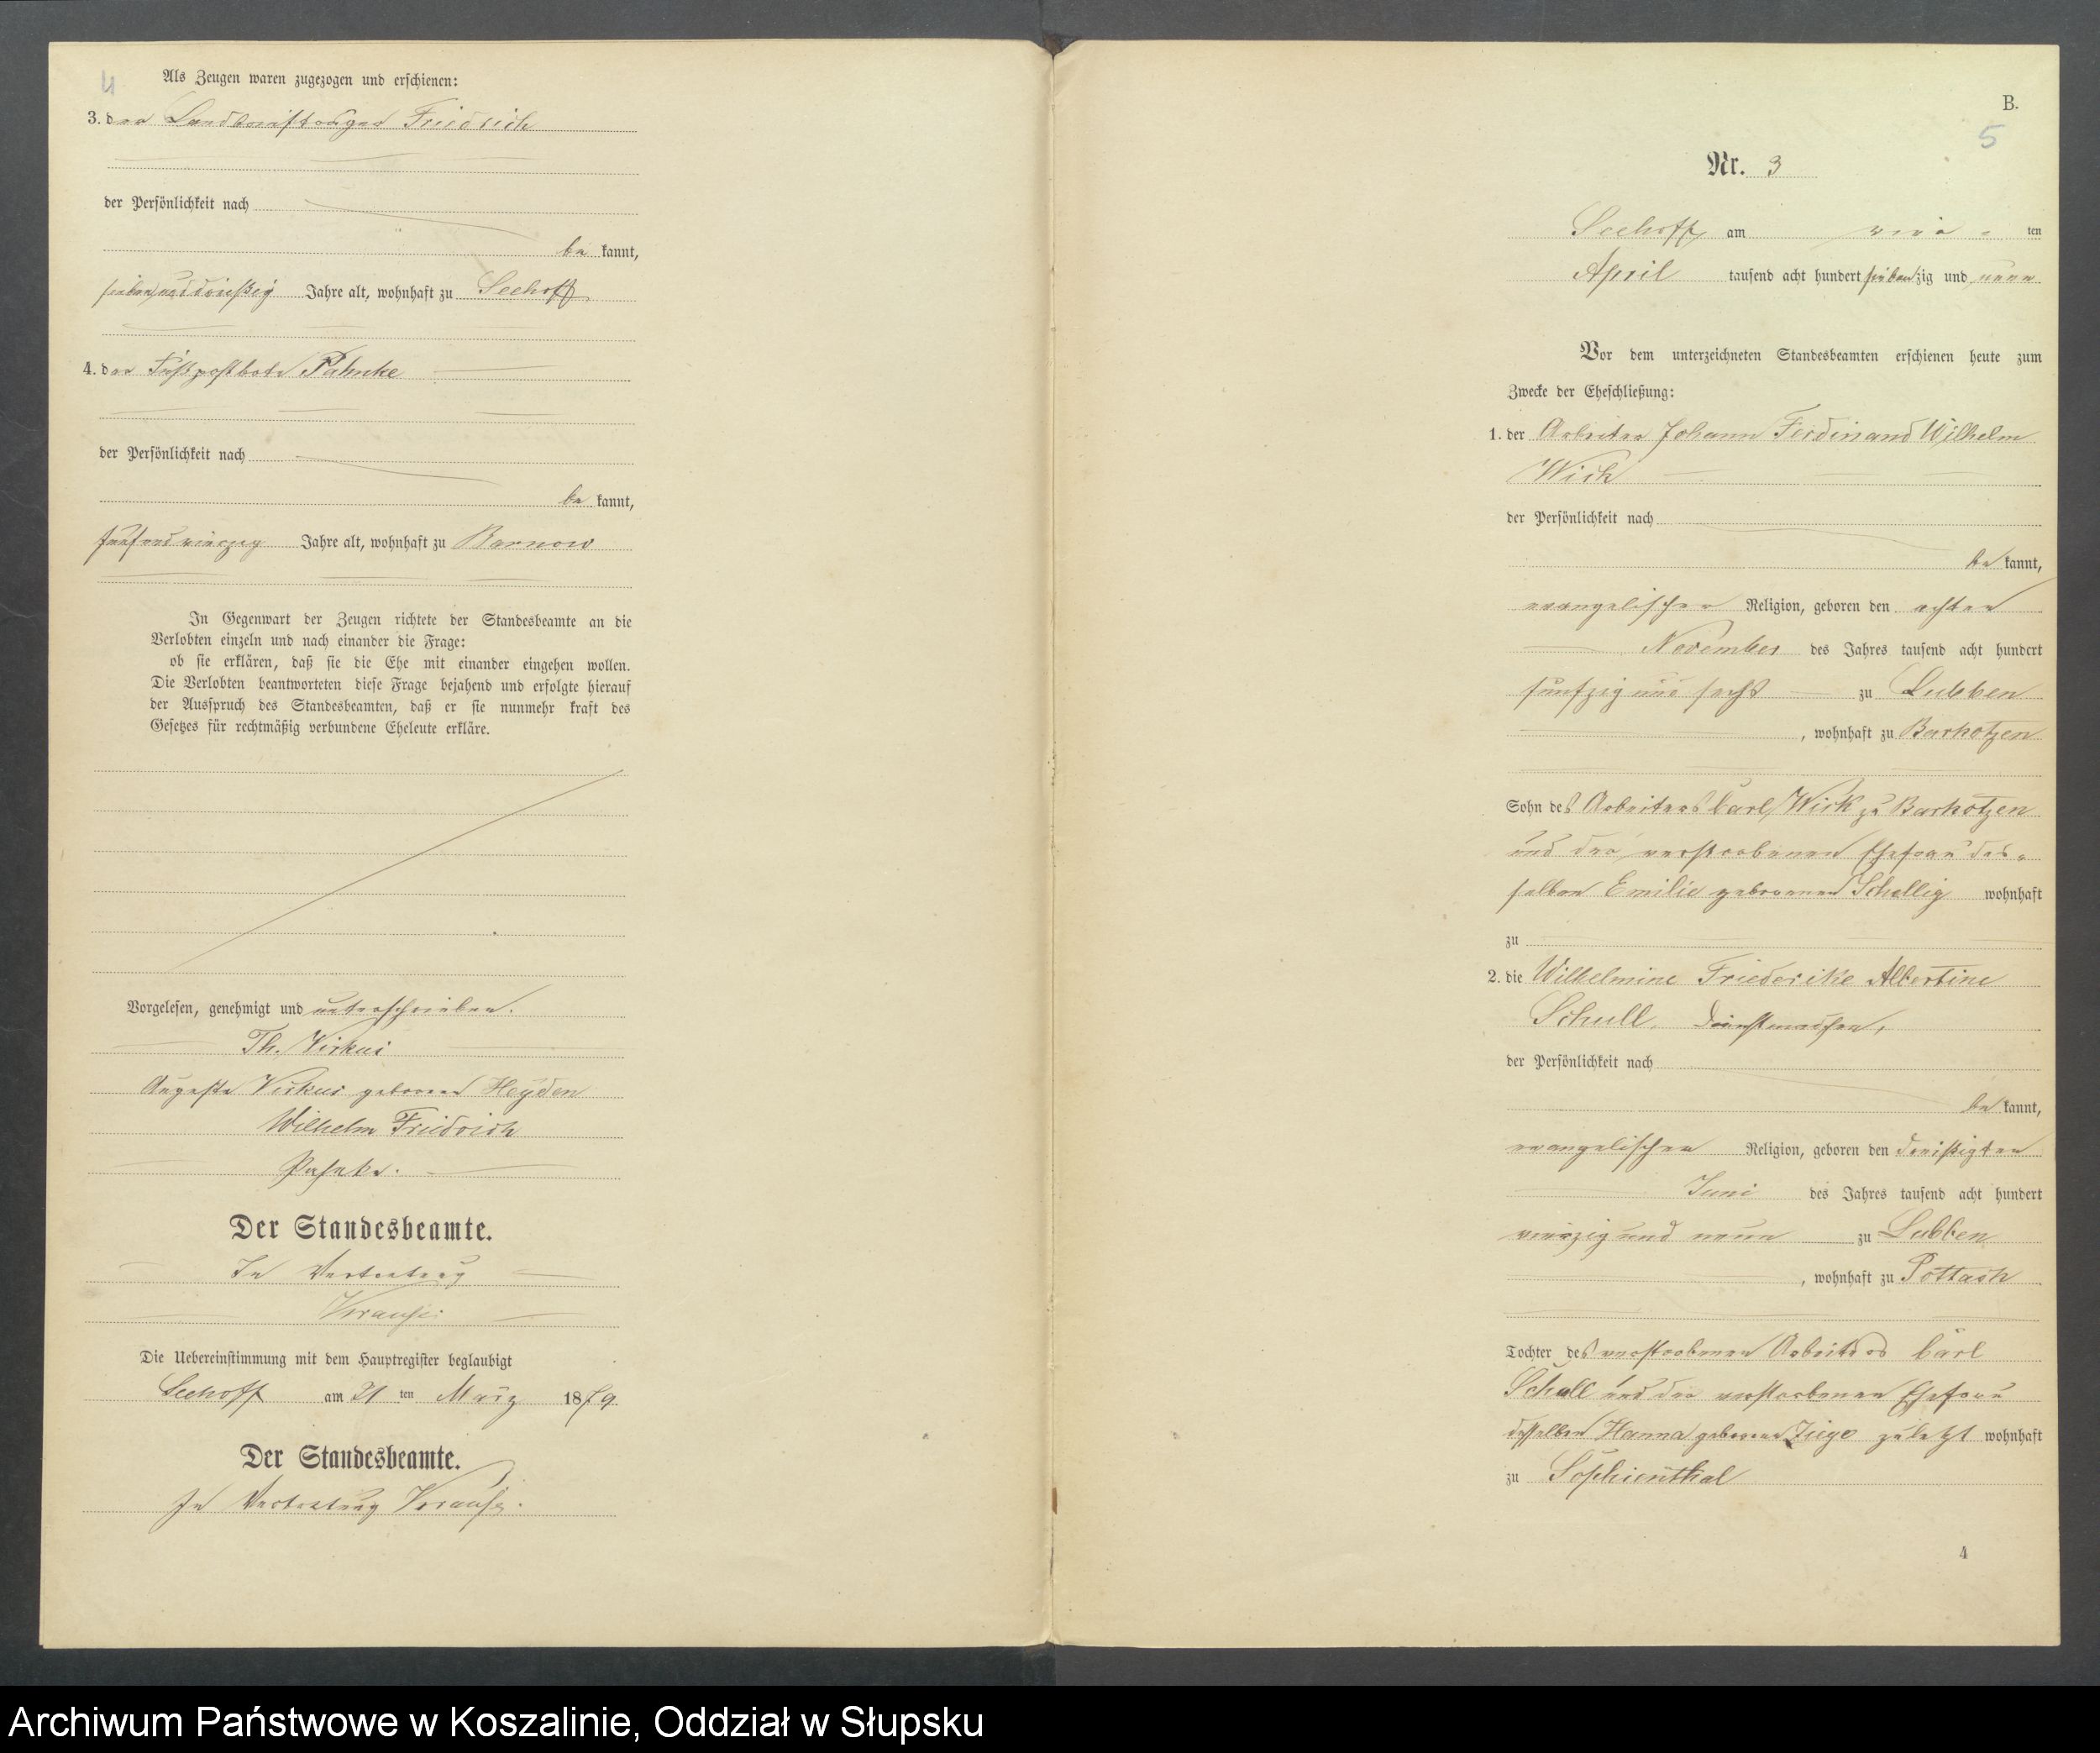 4
Als Zeugen waren zugezogen und erschienen:
3. der Landbriefträger Friedrich
der Persönlichkeit nach
be kannt,
siebenunddreißig Jahre alt, wohnhaft zu Seehoff
4. der Fußpostbote Pahnke
der Persönlichkeit nach
be kannt,
fünfundvierzig Jahre alt, wohnhaft zu Barnow
In Gegenwart der Zeugen richtete der Standesbeamte an die
Verlobten einzeln und nach einander die Frage:
ob sie erklären, daß sie die Ehe mit einander eingehen wollen.
Die Verlobten beantworteten diese Frage bejahend und erfolgte hierauf
der Ausspruch des Standesbeamten, daß er sie nunmehr kraft des
Gesetzes für rechtmäßig verbundene Eheleute erkläre.
Vorgelesen, genehmigt und unterschrieben.
Th. Virkus
Auguste Virkus geborene Heyden
Wilhelm Friedrich
Pahnke.
Der Standesbeamte.
In Vertretung
Krause
Die Uebereinstimmung mit dem Hauptregister beglaubigt
Seehoff am 21 ten März 1879.
Der Standesbeamte.
In Vertretung Krause.
B.
5
Nr. 3
Seehoff am vier- ten
April tausend acht hundert siebenzig und neun
Vor dem unterzeichneten Standesbeamten erschienen heute zum
Zwecke der Eheschließung:
1. der Arbeiter Johann Ferdinand Wilhelm
Wick
der Persönlichkeit nach
be kannt,
evangelischer Religion, geboren den achten
November des Jahres tausend acht hundert
fünfzig und sechs zu Lubben
, wohnhaft zu Barkotzen
Sohn des Arbeiters Carl Wick zu Barkotzen
und der verstorbenen Ehefrau des-
selben Emilie geborenen Schellig wohnhaft
zu
2. die Wilhelmine Friederike Albertine
Schull, Dienstmädchen,
der Persönlichkeit nach
be kannt,
evangelischen Religion, geboren den dreißigten
Juni des Jahres tausend acht hundert
vierzig und neun zu Lubben
, wohnhaft zu Pottack
Tochter des verstorbenen Arbeiters Carl
Schull und der verstorbenen Ehefrau
desselben Hanna geborene zuletzt wohnhaft
zu Sophienthal
4
Archiwum Państwowe w Koszalinie, Oddział w Słupsku